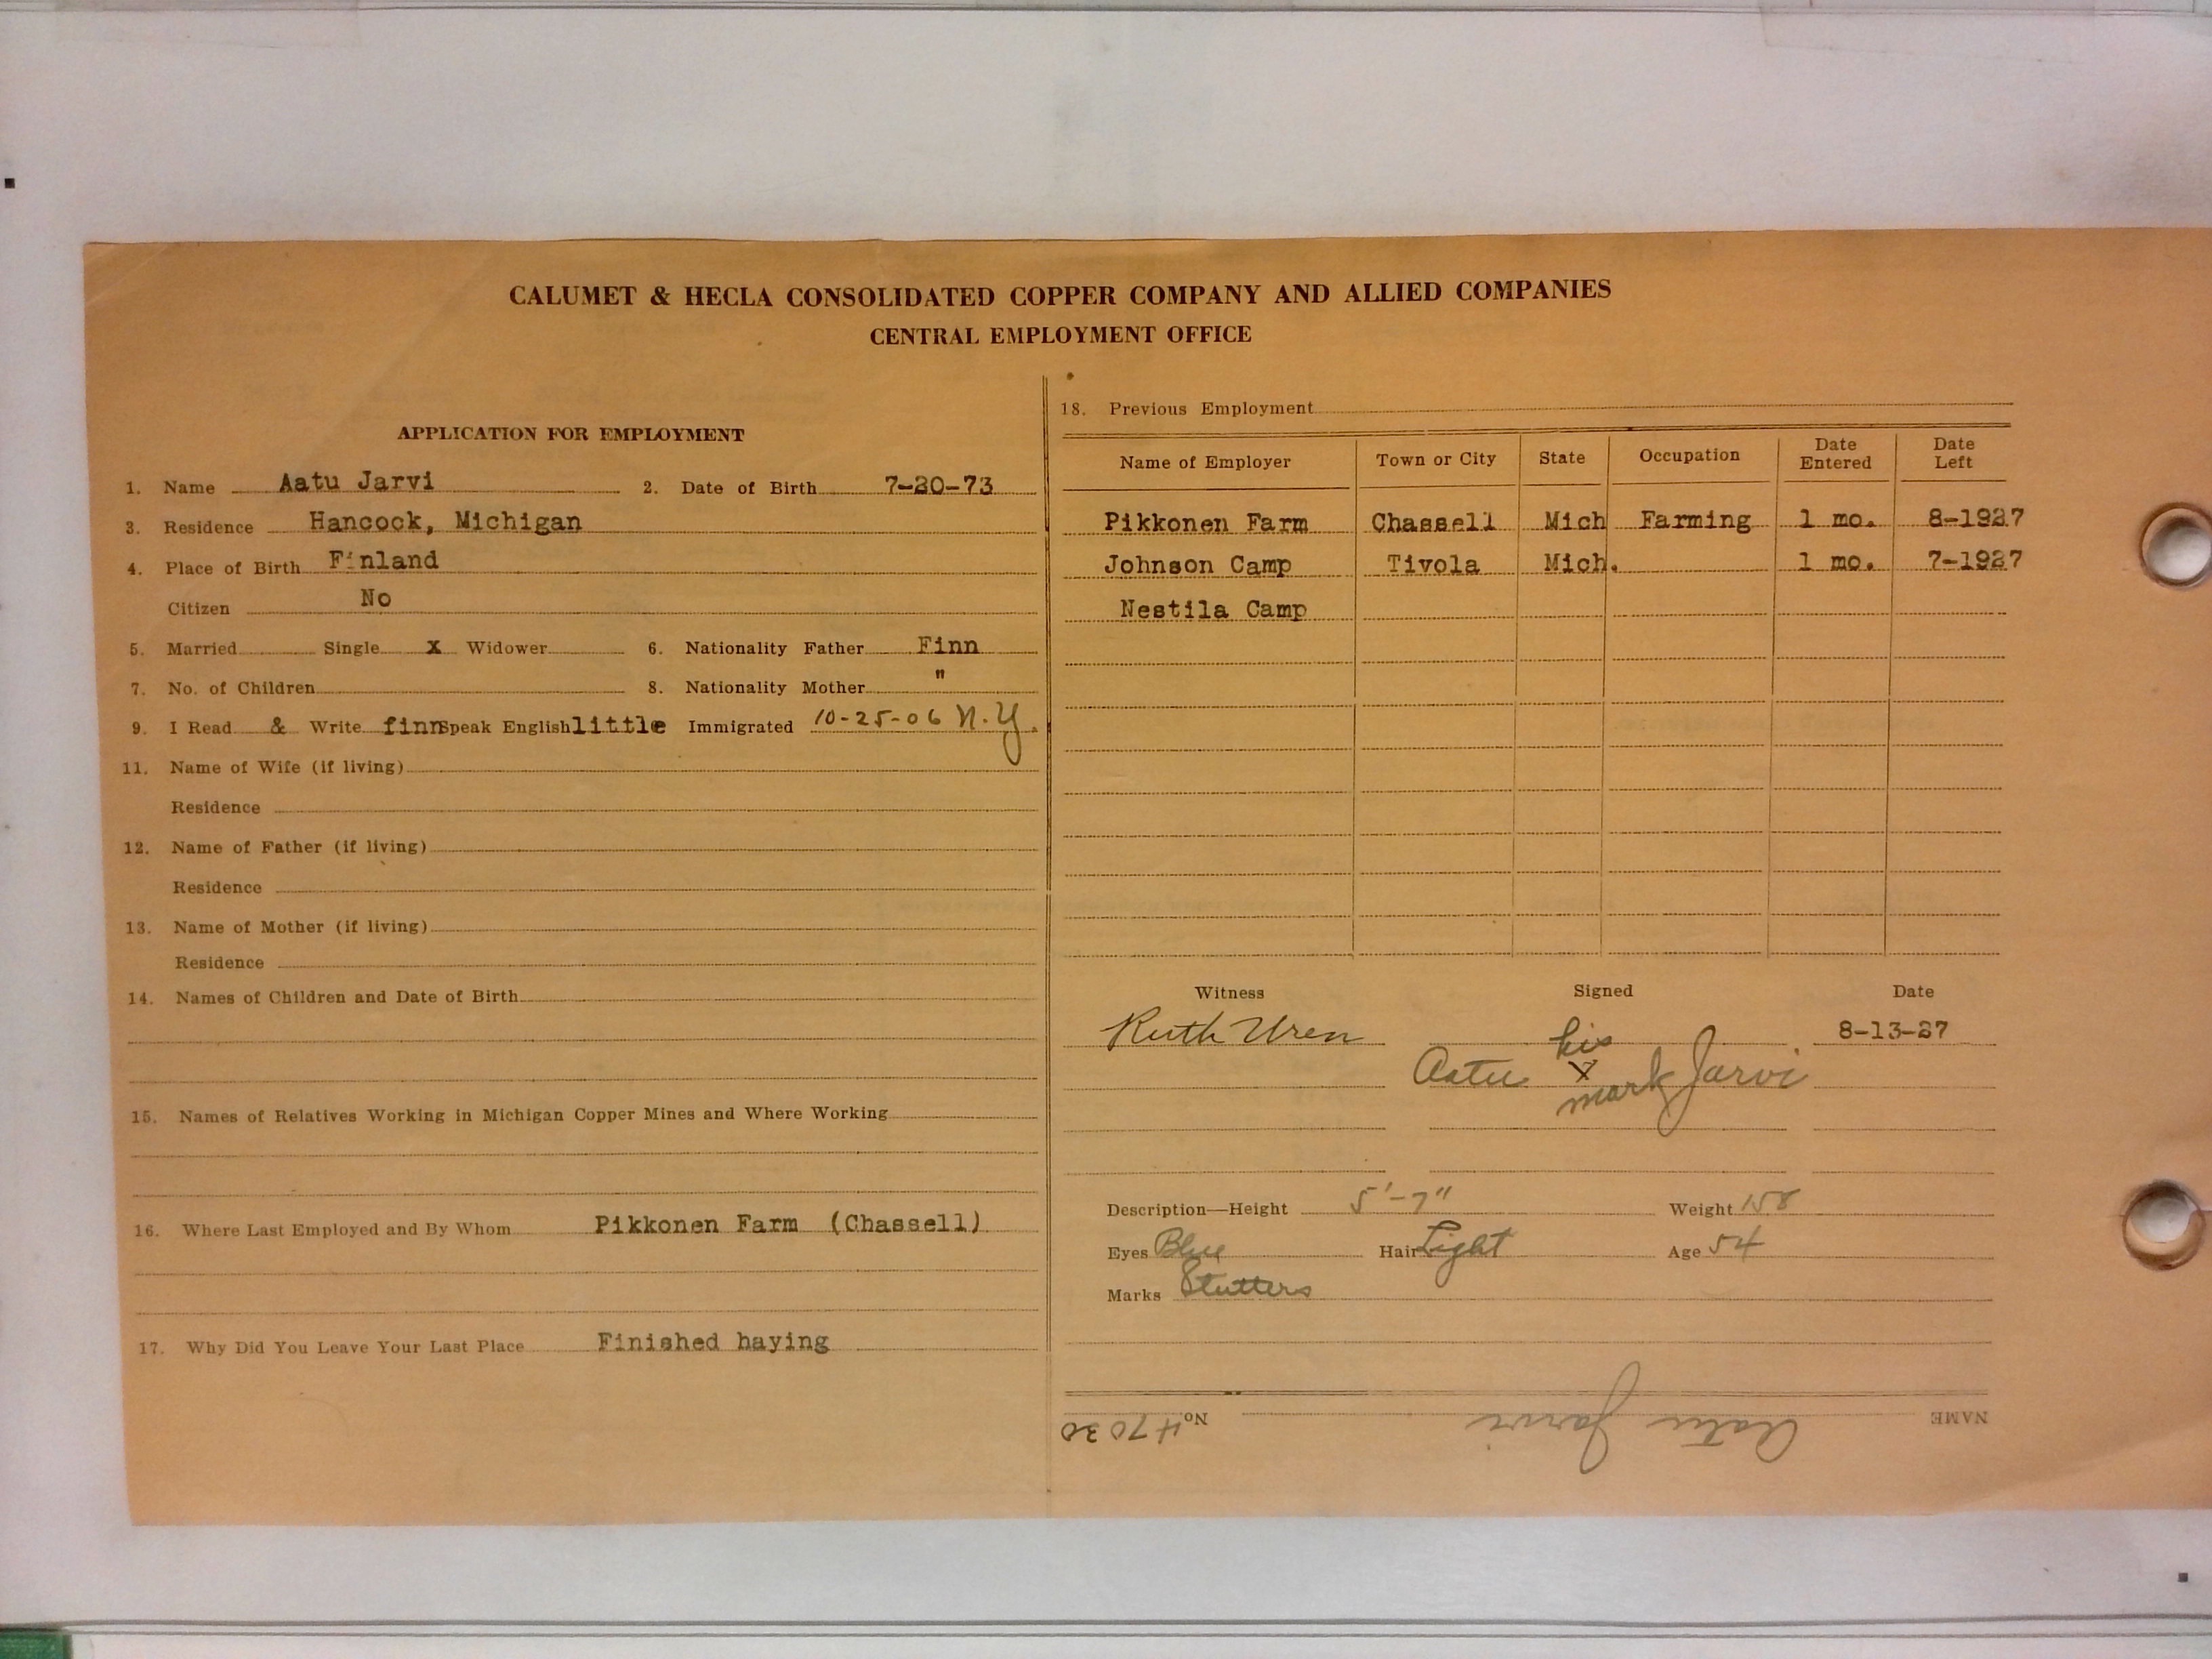 CALUMET & HECLA CONSOLIDATED COPPER COMPANY AND ALLIED COMPANIES
CENTRAL EMPLOYMENT OFFICE
APPLICATION FOR EMPLOYMENT
1. Name Aatu Jarvi 2. Date of Birth 7-20-73
3. Residence Hancock, Michigan
4. Place of Birth Finland
Citizen No
5. Married Single X Widower 6. Nationality Father Finn
7. No. of Children 8. Nationality Mother "
9. I Read & Write finn Speak English little Immigrated 10-25-06 N.Y.
11. Name of Wife (if living)
Residence
12. Name of Father (if living)
Residence
13. Name of Mother (if living)
Residence
14. Names of Children and Date of Birth
15. Names of Relatives Working in Michigan Copper Mines and Where Working
16. Where Last Employed and By Whom Pikkonen Farm (Chassell)
17. Why Did You Leave Your Last Place Finished haying
18. Previous Employment
Name of Employer Town or City State Occupation Date Entered Date Left
Pikkonen Farm Chassell Mich Farming 1 mo. 8-1927
Johnson Camp Tivola Mich. 1 mo. 7-1927
Nestila Camp
Witness Signed Date
Ruth Uren 8-13-27
his
Aatu X Jarvi
mark
Description—Height 5'-7" Weight 158
Eyes Blue Hair Light Age 54
Marks Stutters
NAME Aatu Jarvi No. 47030